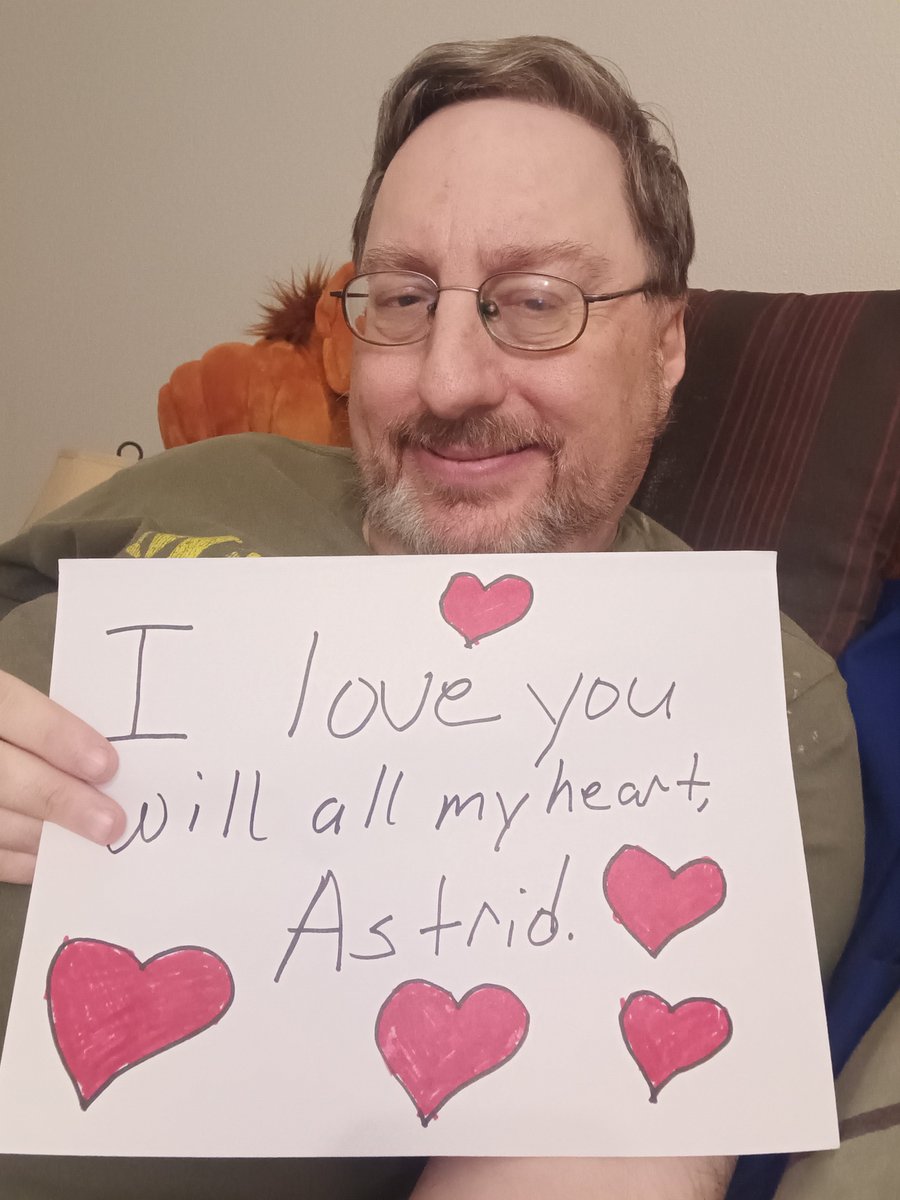 I love you
will all my heart,
Astrid.